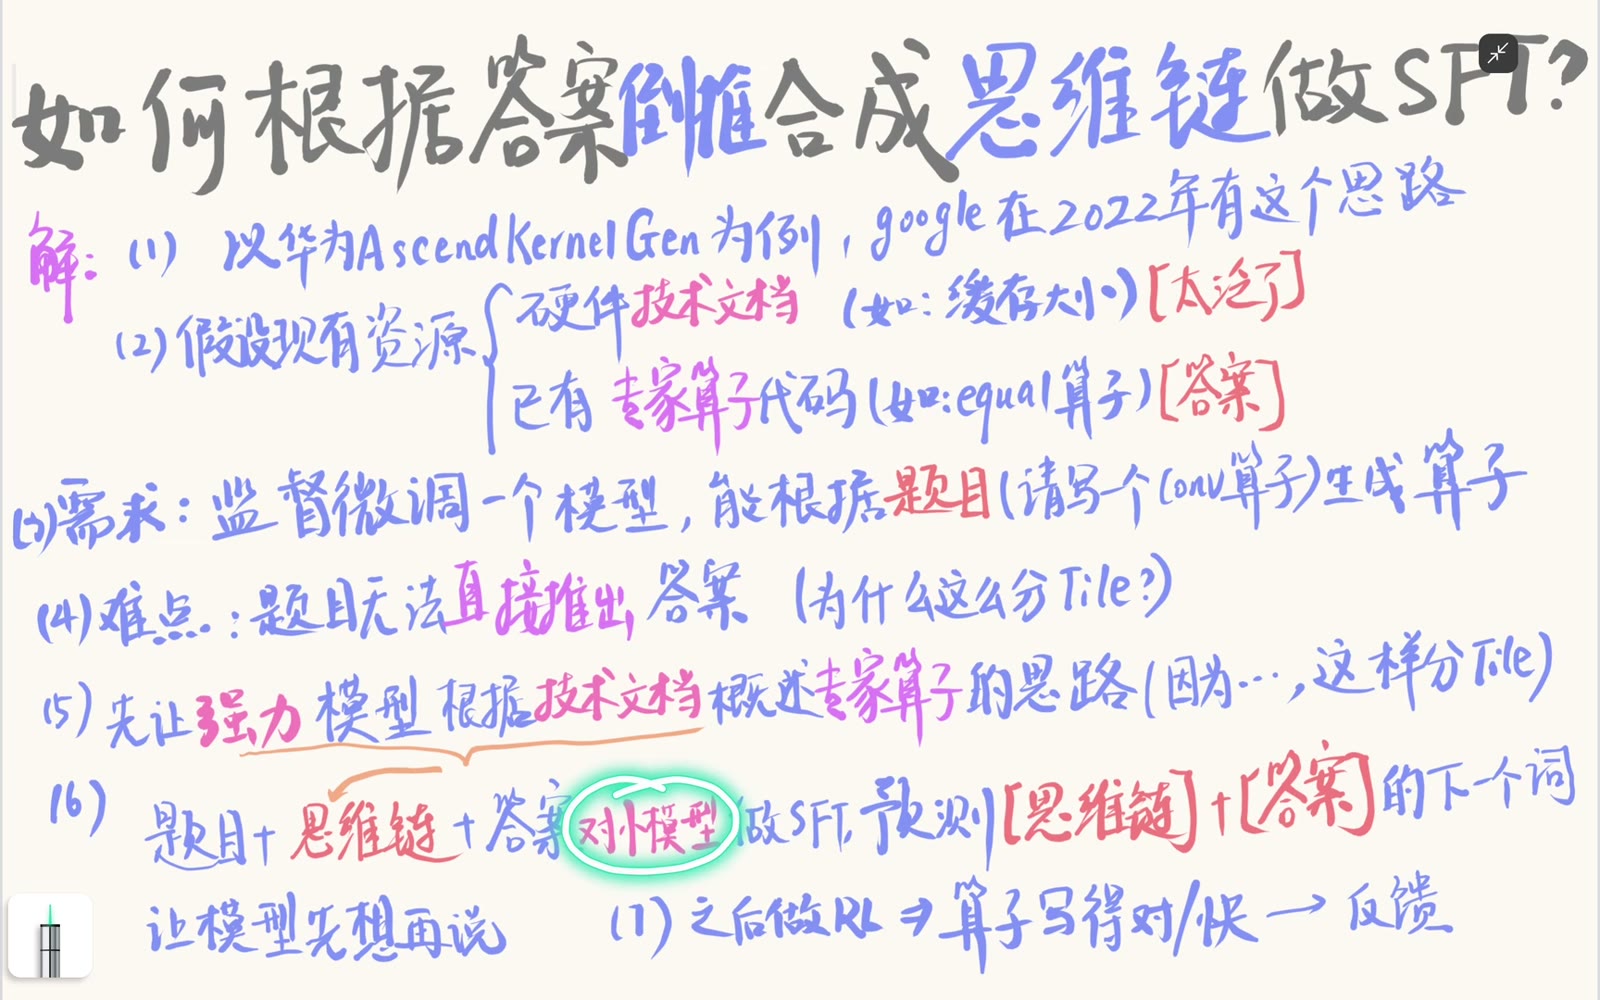 如何根据答案倒推合成思维链做SFT?
解: (1) 以华为AscendKernelGen为例, google在2022年有这个思路
(2) 假设现有资源
硬件技术文档 (如: 缓存大小) [太泛了]
已有专家算子代码 (如: equal算子) [答案]
(3) 需求: 监督微调一个模型, 能根据题目(请写一个Conv算子)生成算子
(4) 难点: 题目无法直接推出答案 (为什么这么分Tile?)
(5) 先让强力模型根据技术文档概述专家算子的思路(因为…, 这样分Tile)
(6) 题目+思维链+答案对小模型做SFT, 预测[思维链]+[答案]的下一个词
让模型先想再说 (7) 之后做RL⇒算子写得对/快→反馈